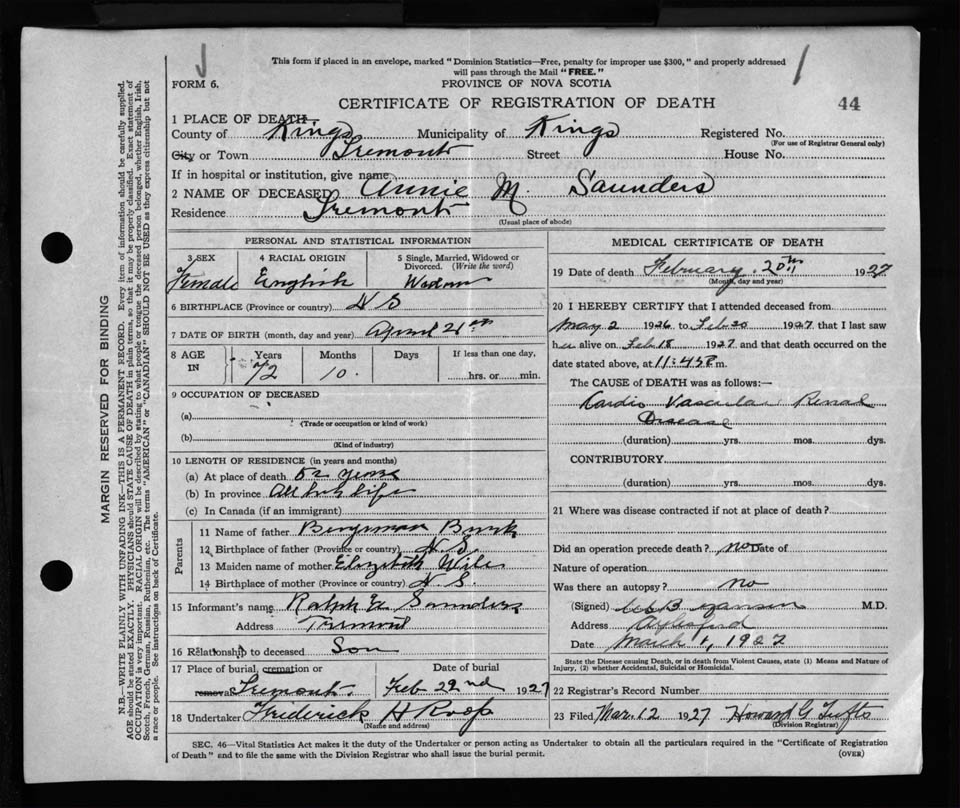 This form if placed in an envelope, marked "Dominion Statistics—Free, penalty for improper use $300," and properly addressed
will pass through the Mail "FREE."
FORM 6.
PROVINCE OF NOVA SCOTIA
CERTIFICATE OF REGISTRATION OF DEATH
44
1 PLACE OF DEATH—
County of Kings Municipality of Kings Registered No.
(For use of Registrar General only)
City or Town Tremont Street House No.
If in hospital or institution, give name
2 NAME OF DECEASED Annie M. Saunders
Residence Tremont
(Usual place of abode)
PERSONAL AND STATISTICAL INFORMATION
3 SEX 4 RACIAL ORIGIN 5 Single, Married, Widowed or Divorced. (Write the word)
Female English Widow
6 BIRTHPLACE (Province or country) N S
7 DATE OF BIRTH (month, day and year) April 21st
8 AGE IN Years Months Days If less than one day,
72 10 hrs. or min.
9 OCCUPATION OF DECEASED
(a)
(Trade or occupation or kind of work)
(b)
(Kind of industry)
10 LENGTH OF RESIDENCE (in years and months)
(a) At place of death 52 years
(b) In province All her life
(c) In Canada (if an immigrant)
Parents
11 Name of father Benjaman
12 Birthplace of father (Province or country) N. S.
13 Maiden name of mother Elizabeth Wile
14 Birthplace of mother (Province or country) N. S.
15 Informant's name Ralph E Saunders
Address Tremont
16 Relationship to deceased Son
17 Place of burial, cremation or removal Date of burial
Tremont. Feb 22nd 1927
18 Undertaker Frederick A Roop
(Name and address)
MEDICAL CERTIFICATE OF DEATH
19 Date of death February 20th 1927
(Month, day and year)
20 I HEREBY CERTIFY that I attended deceased from
May 2 1926 to Feb 20 1927 that I last saw
her alive on Feb 18 1927 and that death occurred on the
date stated above, at 11:45 P m.
The CAUSE OF DEATH was as follows:—
Cardio Vascular Renal
Disease
(duration) yrs. mos. dys.
CONTRIBUTORY
(duration) yrs. mos. dys.
21 Where was disease contracted if not at place of death?
Did an operation precede death? no Date of
Nature of operation
Was there an autopsy? no
(Signed) M.D.
Address Aylesford
Date March 1, 1927
State the Disease causing Death, or in death from Violent Causes, state (1) Means and Nature of
Injury, (2) whether Accidental, Suicidal or Homicidal.
22 Registrar's Record Number
23 Filed Mar. 12 1927 Howard G Tufts
(Division Registrar)
SEC. 46—Vital Statistics Act makes it the duty of the Undertaker or person acting as Undertaker to obtain all the particulars required in the "Certificate of Registration
of Death" and to file the same with the Division Registrar who shall issue the burial permit. (OVER)
MARGIN RESERVED FOR BINDING
N.B.—WRITE PLAINLY WITH UNFADING INK—THIS IS A PERMANENT RECORD. Every item of information should be carefully supplied.
AGE should be stated EXACTLY. PHYSICIANS should STATE CAUSE OF DEATH in plain terms, so that it may be properly classified. Exact statement of
OCCUPATION is very important. RACIAL ORIGIN will be described by stating to what people or tongue the deceased person belonged, whether English, Irish,
Scotch, French, German, Russian, Ruthenian, etc. The terms "AMERICAN" or "CANADIAN" SHOULD NOT BE USED as they express citizenship but not
a race or people. See instructions on back of Certificate.